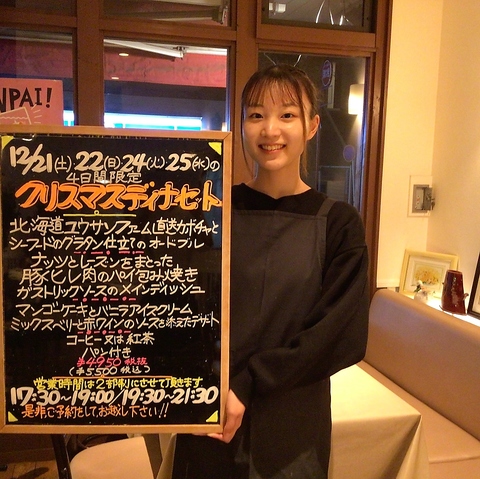 NPAI!
12/21(土) 22(日) 24(火) 25(水)の
4日間限定
クリスマスディナーセット
北海道ユウサンファーム直送カボチャと
シーフードのグラタン仕立てのオードブル
ナッツとレーズンをまとった
豚ヒレ肉のパイ包み焼き
ガストリックソースのメインディッシュ
マンゴーケーキとバニラアイスクリーム
ミックスベリーと赤ワインのソースを添えたデザート
コーヒー又は紅茶
パン付き
¥4950 税抜
(¥5,500 税込)
営業時間は2部制にさせて頂きます
17:30~19:00/19:30~21:30
是非ご予約をしてお越し下さい!!